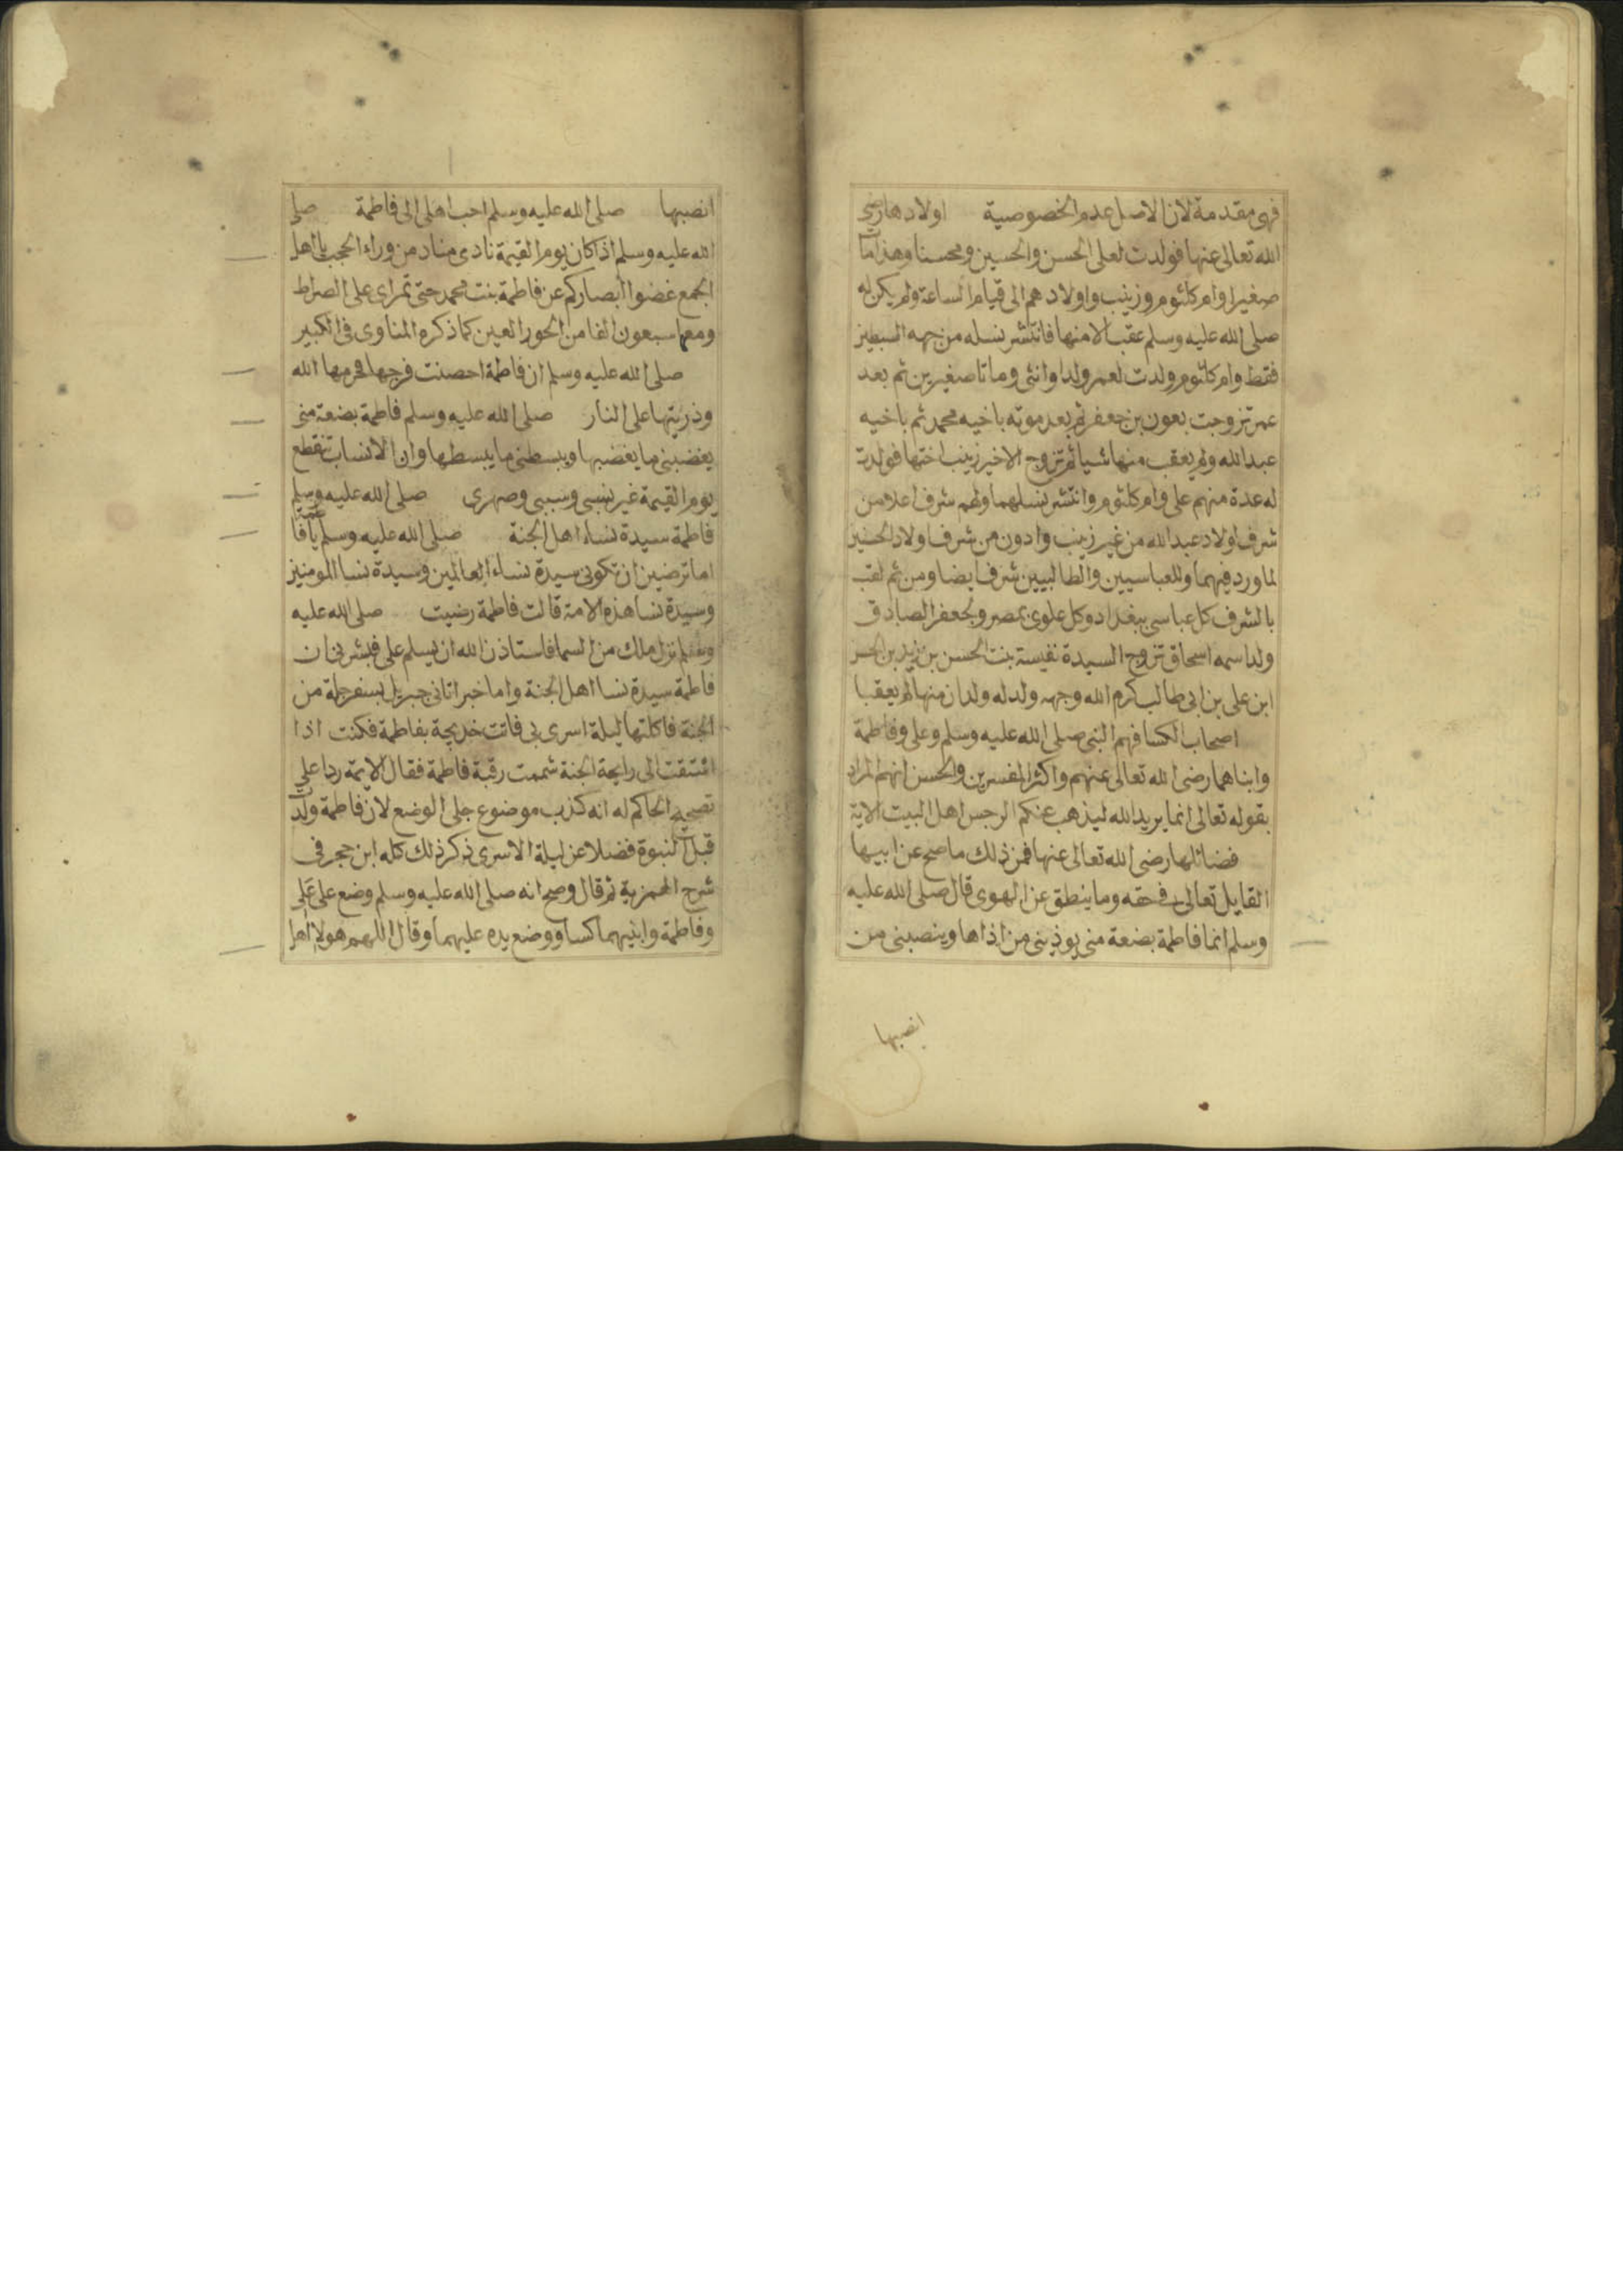 فهى مقدمة لان الاصل عدم الخصوصية اولادها رضى
الله تعالى عنها فولدت لعلى الحسن والحسين ومحسنا وهذا مات
صغيرا وام كلثوم وزينب واولادهم الى قيام الساعة ولم يكن له
صلى الله عليه وسلم عقب الا منها فانتشر نسله من جهه السبطين
فقط وام كلثوم ولدت لعمر ولدا وانثى وماتا صغيرين ثم بعد
عمر تزوجت بعون بن جعفر ثم بعد موته باخيه محمد ثم باخيه
عبد الله ولم يعقب منها شيا ثم تزوج الاخير زينب اختها فولدت
له عدة منهم على وام كلثوم وانتشر نسلهما ولهم شرف اعلا من
شرف اولاد عبد الله من غير زينب وادون من شرف اولاد الحسنين
لما ورد فيهما وللعباسيين والطالبيين شرف ايضا ومن ثم لقب
بالشرف كل عباسى ببغداد وكل علوى بمصر ولجعفر الصادق
ولد اسمه اسحاق تزوج السيدة نفيسة بنت الحسن بن زيد بن الحسن
ابن على بن ابى طالب كرم الله وجهه ولد له ولدان منها لم يعقبا
اصحاب الكسا فهم النبى صلى الله عليه وسلم وعلى وفاطمة
وابناهما رضى الله تعالى عنهم واكثر المفسرين والحسن انهم المراد
بقوله تعالى انما يريد الله ليذهب عنكم الرجس اهل البيت الاية
فضائلها رضى الله تعالى عنها فمن ذلك ما صح عن ابيها
القايل تعالى فى حقه وما ينطق عن الهوى قال صلى الله عليه
وسلم انما فاطمة بضعة منى يوذينى من اذاها وينصبنى من
انصبها
انصبها صلى الله عليه وسلم احب اهلى الى فاطمة صلى
الله عليه وسلم اذا كان يوم القيمة نادى مناد من وراء الحجب يا اهل
الجمع غضوا ابصاركم عن فاطمة بنت محمد حتى تمر اى على الصراط
ومعها سبعون الفا من الحور العين كما ذكره المناوى فى الكبير
صلى الله عليه وسلم ان فاطمة احصنت فرجها فحرمها الله
وذريتها على النار صلى الله عليه وسلم فاطمة بضعة منى
يغضبنى ما يغضبها ويبسطنى ما يبسطها وان الانساب تنقطع
يوم القيمة غير نسبى وسببى وصهرى صلى الله عليه وسلم
فاطمة سيدة نساء اهل الجنة صلى الله عليه وسلم يا فاطمة
اما ترضين ان تكونى سيدة نساء العالمين وسيدة نسا المومنين
وسيدة نسا هذه الامة قالت فاطمة رضيت صلى الله عليه
وسلم نزل ملك من السما فاستاذن الله ان يسلم على فبشرنى ان
فاطمة سيدة نسا اهل الجنة واما خبر اتانى جبريل بسفرجلة من
الجنة فاكلتها ليلة اسرى بى فاتت خديجة بفاطمة فكنت اذا
اشتقت الى رايحة الجنة شممت رقبة فاطمة فقال الايمة ردا على
تصحيح الحاكم له انه كذب موضوع جلى الوضع لان فاطمة ولدت
قبل النبوة فضلا عن ليلة الاسرى ذكر ذلك كله ابن حجر فى
شرح الهمزية ثم قال وصح انه صلى الله عليه وسلم وضع على على
وفاطمة وابنيهما كسا ووضع يده عليهما وقال اللهم هولاا اهل